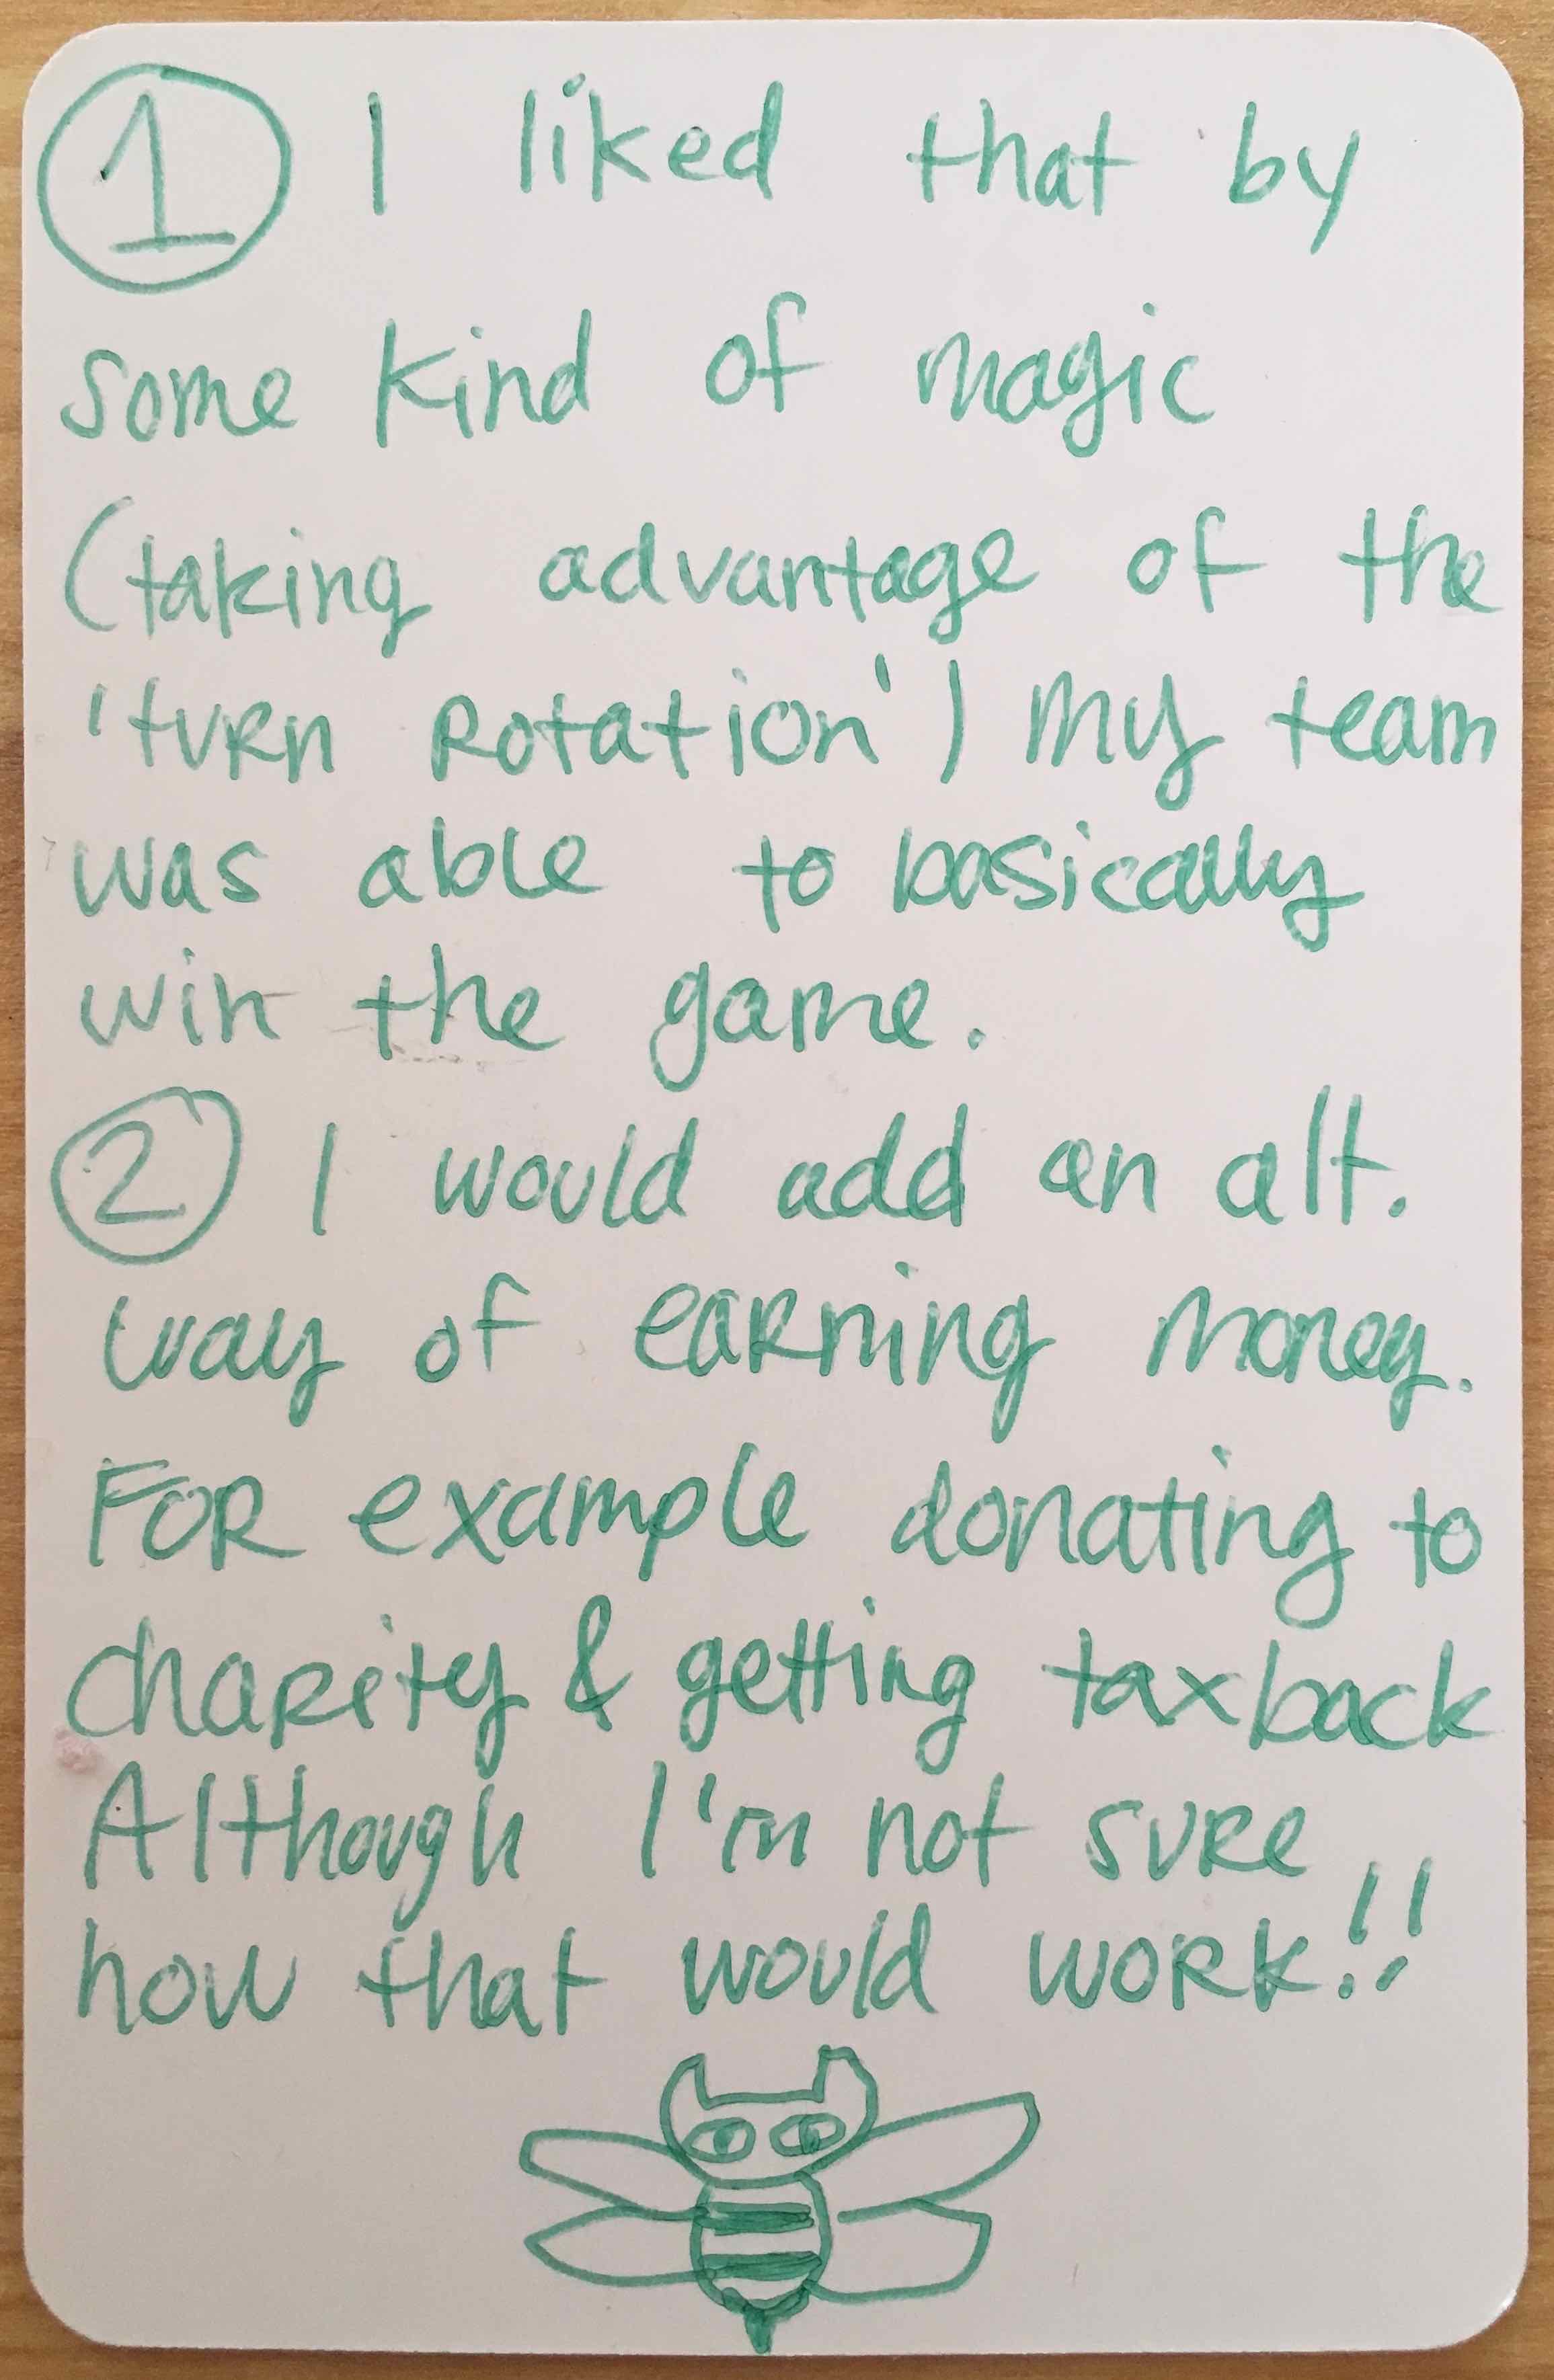 ① I liked that by
some kind of magic
(taking advantage of the
'turn rotation') my team
was able to basically
win the game.
② I would add an alt.
way of earning money.
For example donating to
charity & getting taxback
Although I'm not sure
how that would work!!